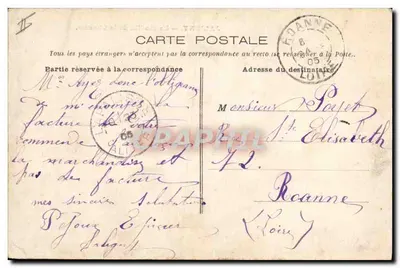 CARTE POSTALE
Tous les pays étrangers n'acceptent pas la correspondance au recto (se renseigner à la Poste).
Partie réservée à la correspondance
Adresse du destinataire
ROANNE
05
LOIRE
Mr Ayez donc l'obligeance
de m'envoyer la
facture de votre
commende
la marchandise et
pas de facture
mes sincères Salutations
Monsieur
Rue Ste Elisabeth
72
Roanne
(Loire)